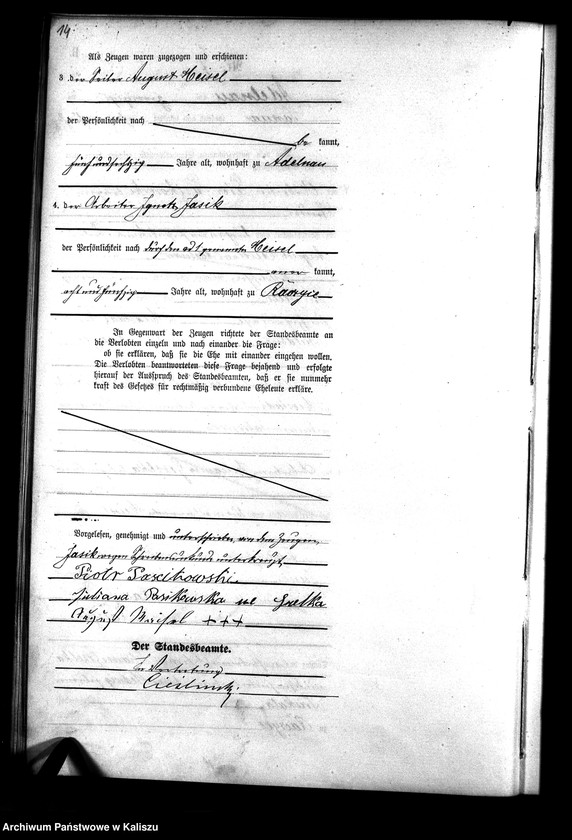 14.
Als Zeugen waren zugezogen und erschienen:
3. der Seiler August Heisel
der Persönlichkeit nach
be kannt,
fünfundsechzig Jahre alt, wohnhaft zu Adelnau
4. der Arbeiter Ignatz Jasik
der Persönlichkeit nach durch den ad 1 genannten Heisel
kannt,
achtundfünfzig Jahre alt, wohnhaft zu Raczyce
In Gegenwart der Zeugen richtete der Standesbeamte an
die Verlobten einzeln und nach einander die Frage:
ob sie erklären, daß sie die Ehe mit einander eingehen wollen.
Die Verlobten beantworteten diese Frage bejahend und erfolgte
hierauf der Ausspruch des Standesbeamten, daß er sie nunmehr
kraft des Gesetzes für rechtmäßig verbundene Eheleute erkläre.
Vorgelesen, genehmigt und unterschrieben, von dem Zeugen
Jasik wegen Schreibensunkunde unterkreuzt
Piotr
Juliana
August +++
Der Standesbeamte.
In Vertretung
Archiwum Państwowe w Kaliszu